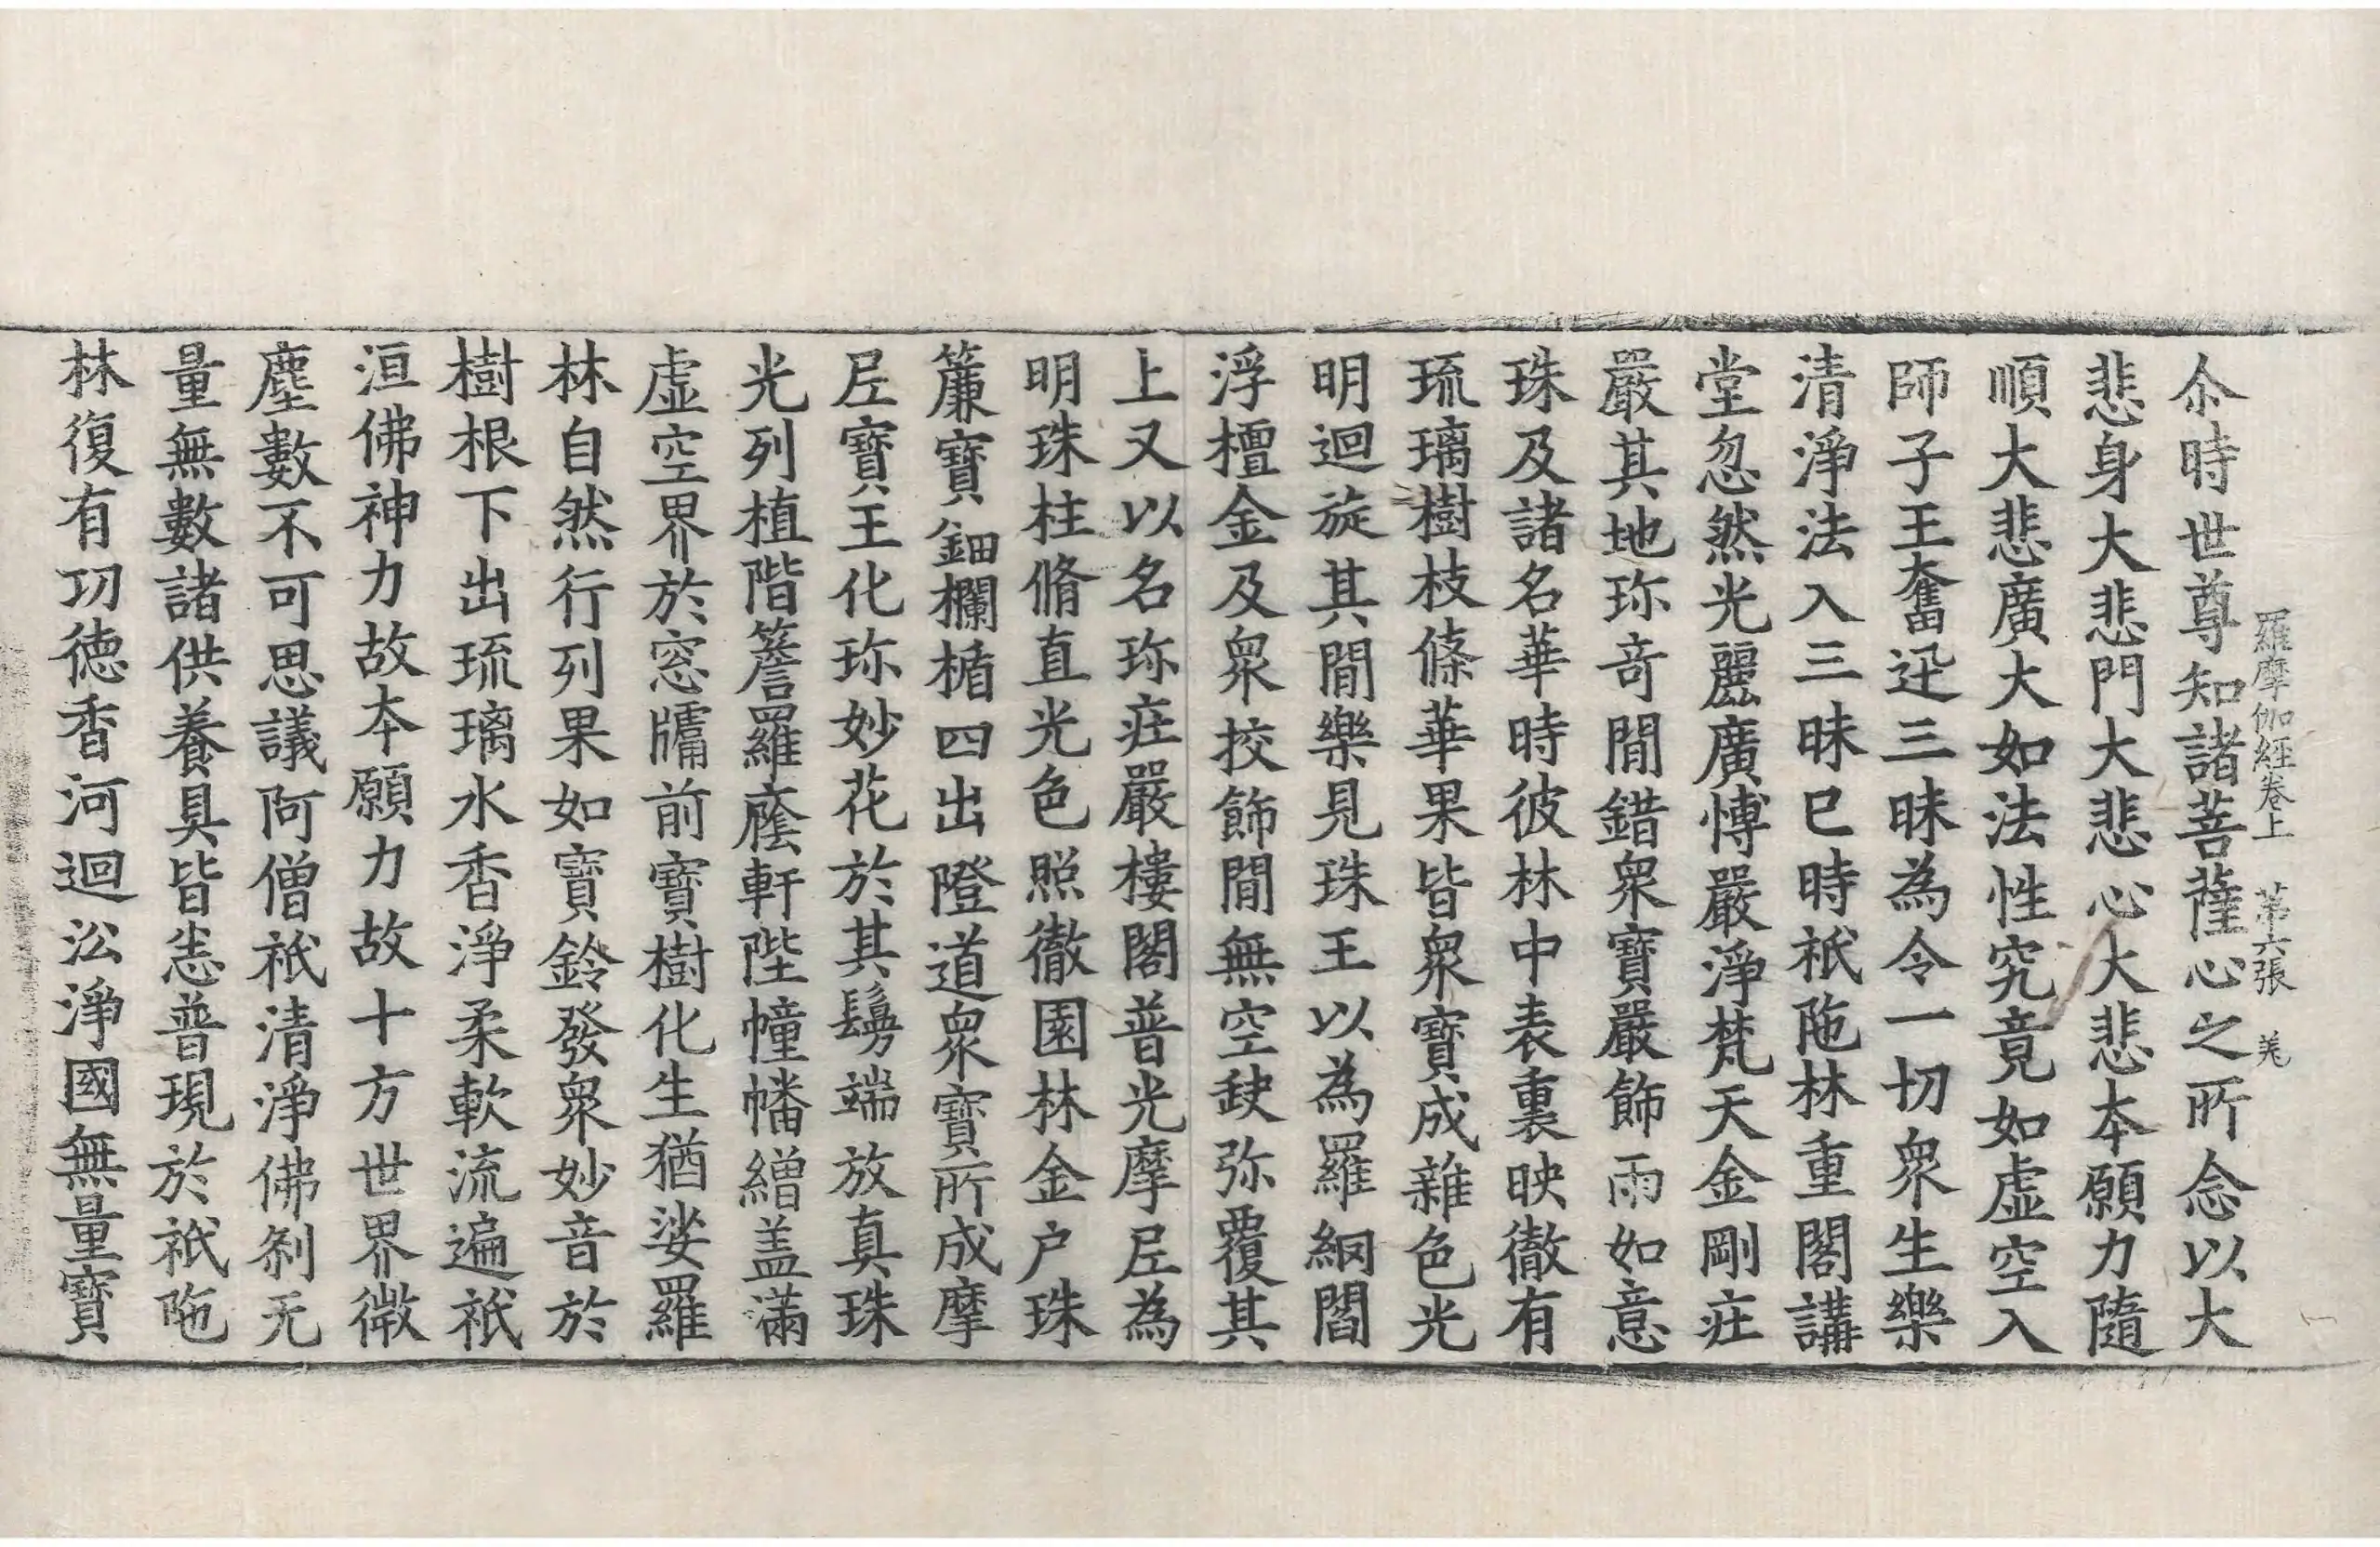 羅摩伽經卷上 苐六張 羌
尒時世尊知諸菩薩心之所念以大
悲身大悲門大悲心大悲本願力隨
順大悲廣大如法性究竟如虛空入
師子王奮迅三昧為令一切衆生樂
清淨法入三昧已時祇陁林重閣講
堂忽然光麗廣愽嚴淨梵天金剛疘
嚴其地珎竒閒錯衆寶嚴飾雨如意
珠及諸名華時彼林中表裏映徹有
琉璃樹枝條華果皆衆寶成雜色光
明迴旋其閒樂見珠王以為羅網閻
浮檀金及衆挍飾閒無空缺弥覆其
上又以名珎疘嚴樓閣普光摩尼為
明珠柱脩直光色照徹園林金户珠
簾寶鈿欄楯四出隥道衆寶所成摩
尼寶王化珎妙花於其鬘端放真珠
光列植階簷羅廕軒陛幢幡繒盖滿
虛空界於窓牖前寶樹化生猶娑羅
林自然行列果如寶鈴發衆妙音於
樹根下出琉璃水香淨柔軟流遍祇
洹佛神力故本願力故十方世界微
塵數不可思議阿僧祇清淨佛刹无
量無數諸供養具皆悉普現於祇陁
林復有功德香河迴㳂淨國無量寶